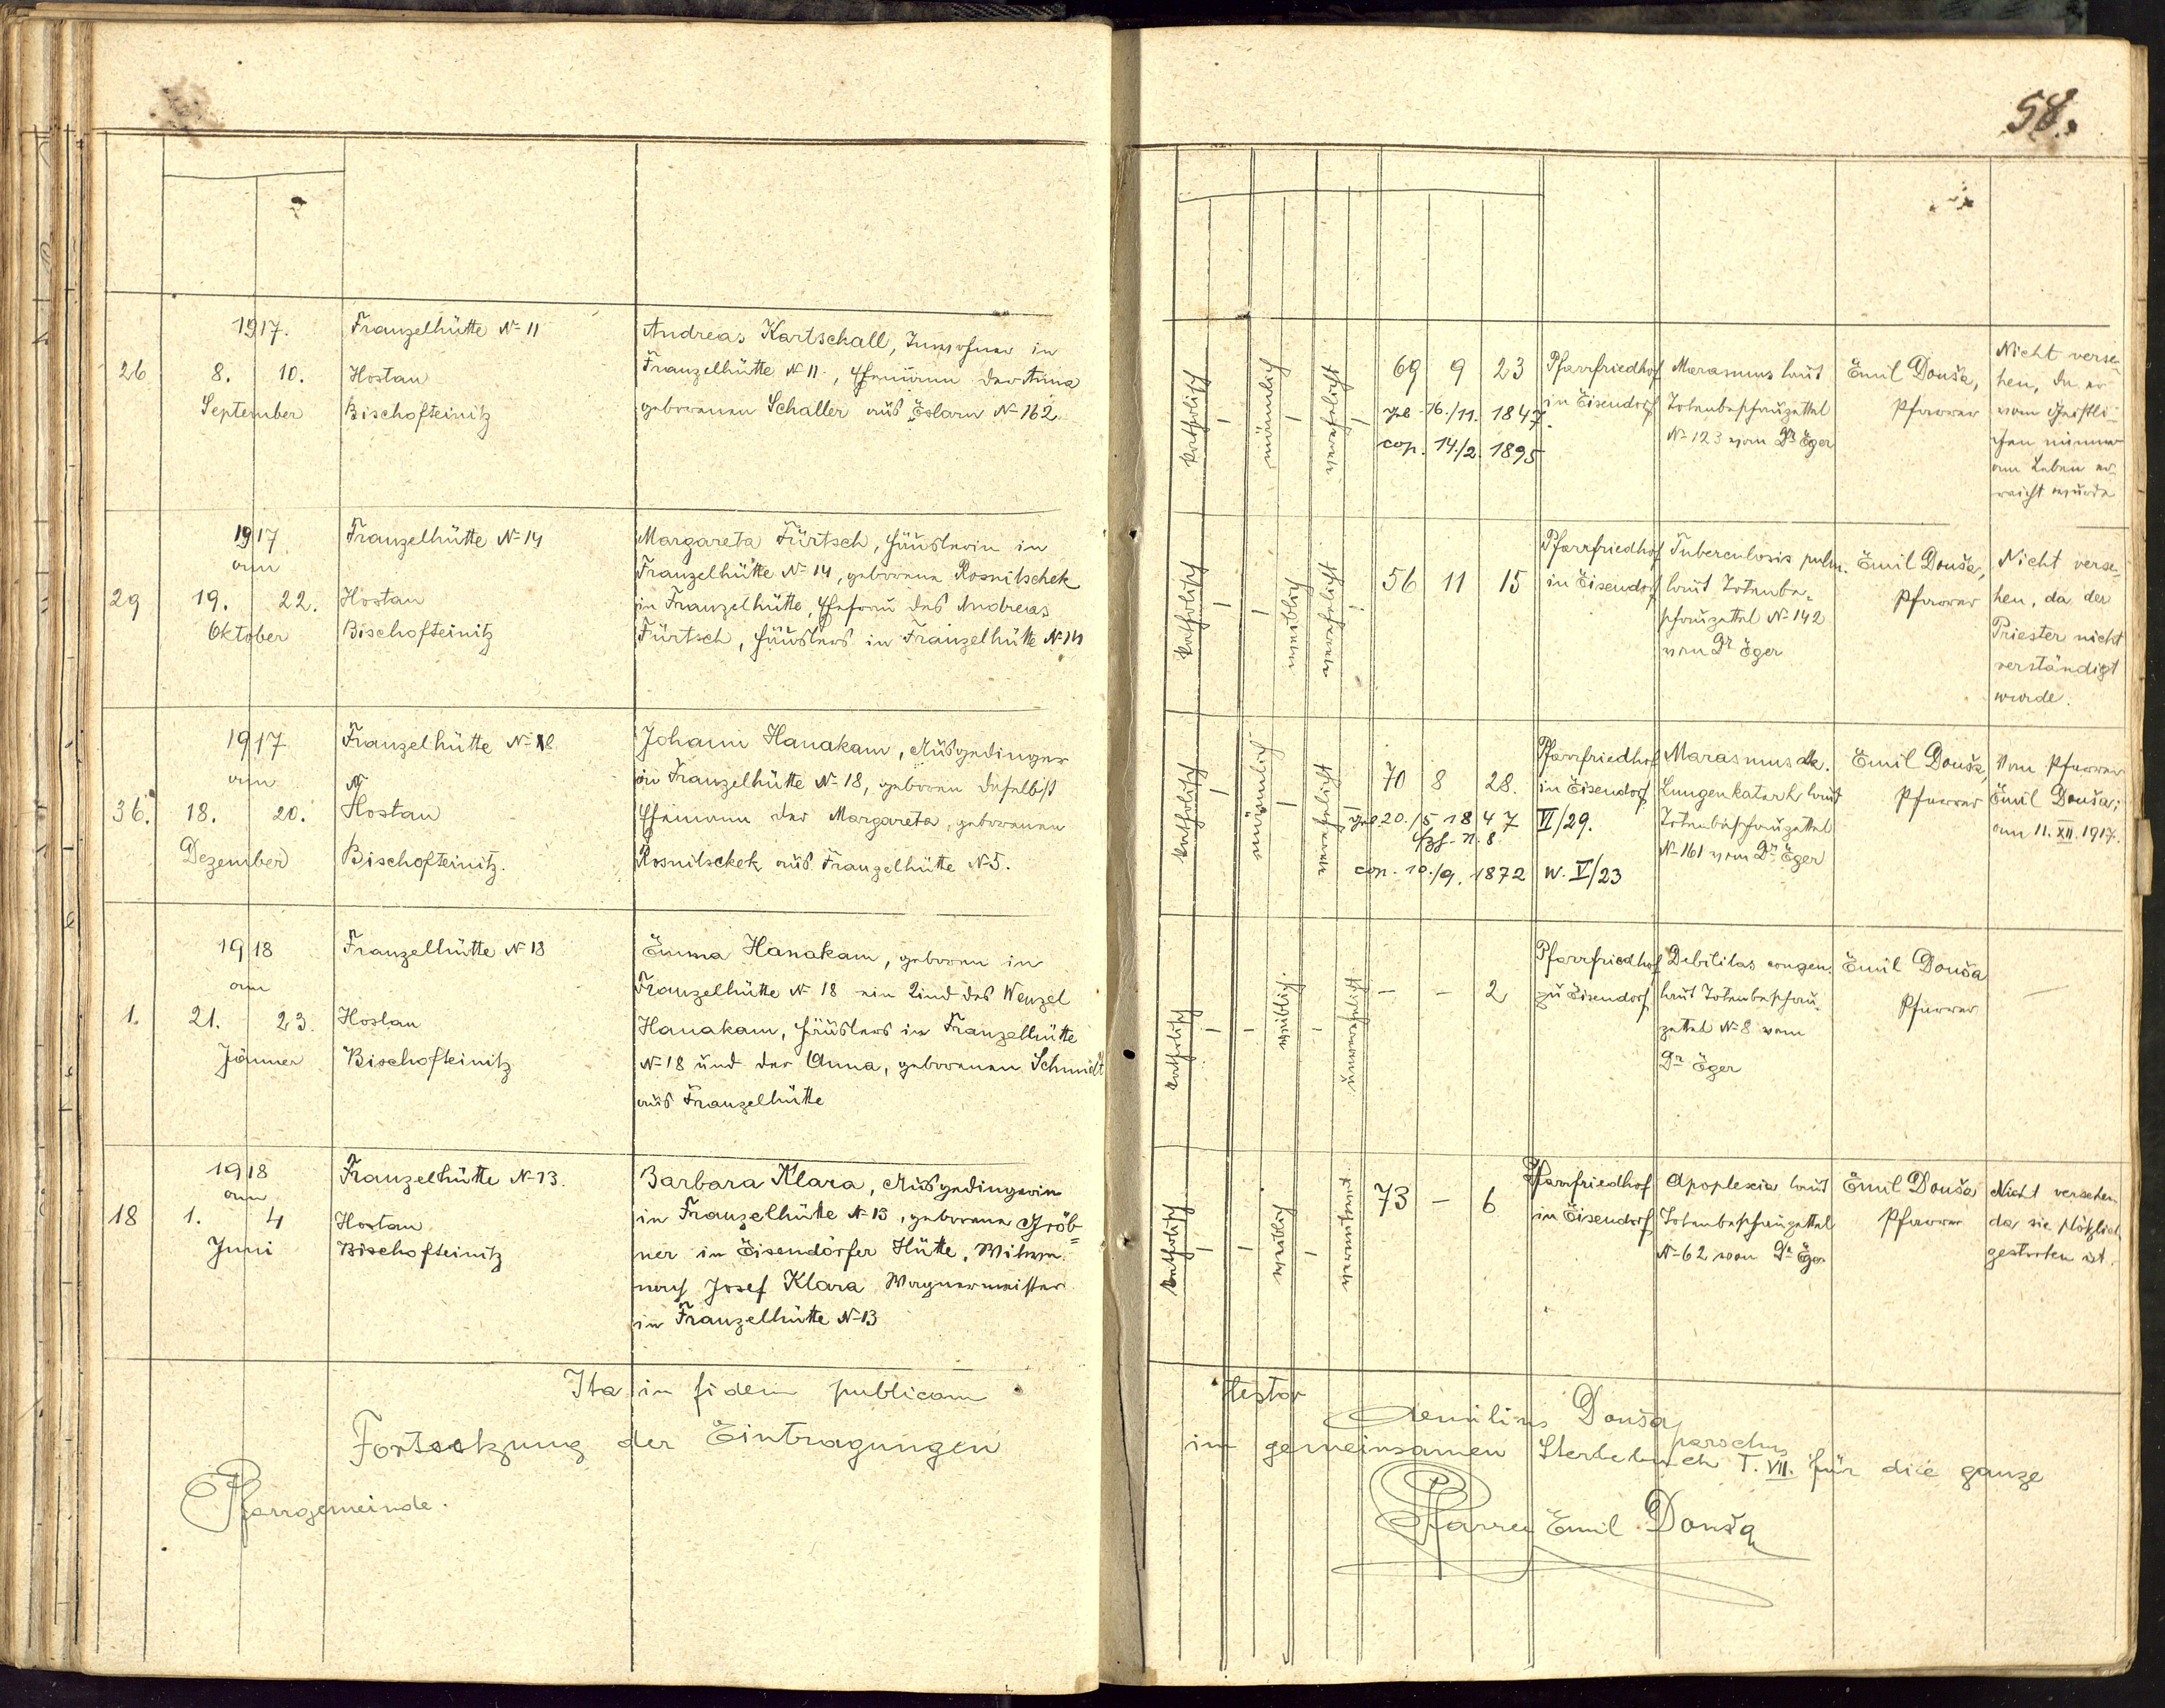 58.
1917.
26
8. 10.
September
Franzelhütte No 11
Hostau
Bischofteinitz
Andreas Kartschall, Inwohner in
Franzelhütte No 11, Ehemann der Anna
geborenen Schaller aus Eslarn No 162
katholisch
männlich
verehelicht
69 9 23
geb. 16./11. 1847.
cop. 14./2. 1895
Pfarrfriedhof
in Eisendorf
Marasmus laut
Totenbeschauzettel
No 123 vom Dr Eger
Emil Douša,
Pfarrer
Nicht verse-
hen, da er
vom Geistli-
chen nimmer
am Leben er-
reicht wurde
1917
am
29
19. 22.
Oktober
Franzelhütte No 14
Hostau
Bischofteinitz
Margareta Fürtsch, Häuslerin in
Franzelhütte No 14, geborene Rosnitschek
in Franzelhütte, Ehefrau des Andreas
Fürtsch, Häuslers in Franzelhütte No 14
katholisch
weiblich
verehelicht
56 11 15
Pfarrfriedhof
in Eisendorf
Tuberculosis pulm.
laut Totenbe-
schauzettel No 142
vom Dr Eger
Emil Douša,
Pfarrer
Nicht verse-
hen, da der
Priester nicht
verständigt
wurde.
1917
am
36.
18. 20.
Dezember
Franzelhütte No 18
Hostau
Bischofteinitz.
Johann Hanakam, Ausgedinger
in Franzelhütte No 18, geboren daselbst
Ehemann der Margareta, geborenen
Rosnitschek aus Franzelhütte No 5.
katholisch
männlich
verehelicht
70 8 28.
geb. 20./5 1847
Fzh. N. 8
cop. 10./9. 1872
Pfarrfriedhof
in Eisendorf
VI/29.
W. V/23
Marasmus
Lungenkatarh laut
Totenbeschauzettel
No 161 vom Dr Eger
Emil Douša,
Pfarrer
Vom Pfarrer
Emil Douša,
am 11. XII. 1917.
1918
am
1.
21. 23.
Jänner
Franzelhütte No 18
Hostau
Bischofteinitz
Emma Hanakam, geboren in
Franzelhütte No 18 ein Kind des Wenzel
Hanakam, Häuslers in Franzelhütte
No 18 und der Anna, geborenen Schmidt
aus Franzelhütte
katholisch
weiblich.
unverehelicht
- - 2
Pfarrfriedhof
zu Eisendorf
Debilitas congen.
laut Totenbeschau-
zettel No 8 vom
Dr Eger
Emil Douša
Pfarrer
—
1918
am
18
1. 4
Juni
Franzelhütte No 13.
Hostau
Bischofteinitz
Barbara Klara, Ausgedingerin
in Franzelhütte No 13, geborene Gröb-
ner in Eisendorfer Hütte, Witwe
nach Josef Klara Wagnermeister
in Franzelhütte No 13
katholisch
weiblich
verwitwet
73 - 6
Pfarrfriedhof
in Eisendorf
Apoplexia laut
Totenbeschauzettel
No 62 von Dr Eger
Emil Douša
Pfarrer
Nicht versehen
da sie plötzlich
gestorben ist.
Ita in fidem publicam testor
Aemilius Douša,
parochus
Fortsetzung der Eintragungen im gemeinsamen Sterbebuch T. VII. für die ganze
Pfarrgemeinde.
Pfarrer Emil Douša